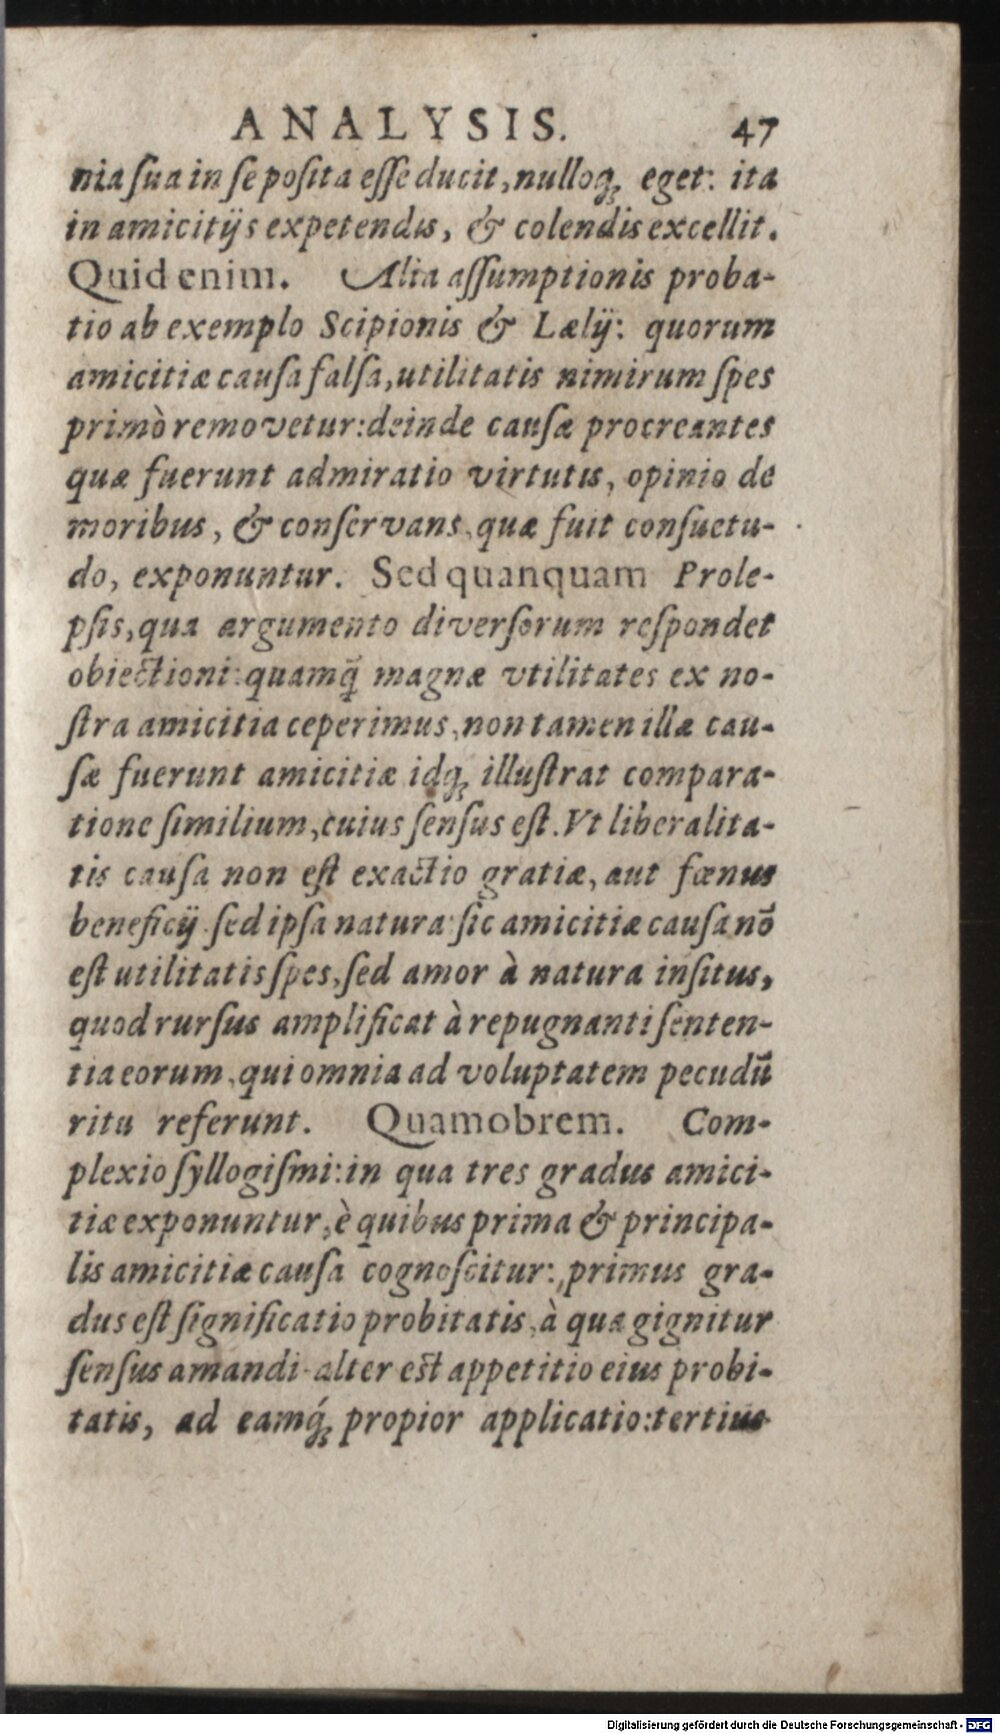 ANALYSIS. 47
nia ſua in ſe poſita eſſe ducit, nulloq́ꝫ eget: ita
in amicitijs expetendis, & colendis excellit.
Quid enim. Alia aſſumptionis proba-
tio ab exemplo Scipionis & Lælij: quorum
amicitiæ cauſa falſa, utilitatis nimirum ſpes
primò removetur: deinde cauſæ procreantes
quæ fuerunt admiratio virtutis, opinio de
moribus, & conſervans, quæ fuit conſuetu-
do, exponuntur. Sed quanquam Prole-
pſis, qua argumento diverſorum reſpondet
obiectioni: quamq̃ magnæ vtilitates ex no-
ſtra amicitia ceperimus, non tamen illæ cau-
ſæ fuerunt amicitiæ idqꝫ illuſtrat compara-
tione ſimilium, cuius ſenſus eſt. Vt liberalita-
tis cauſa non eſt exactio gratiæ, aut fœnus
beneficij ſed ipſa natura: ſic amicitiæ cauſa nō
eſt utilitatis ſpes, ſed amor à natura inſitus,
quod rurſus amplificat à repugnanti ſenten-
tia eorum, qui omnia ad voluptatem pecudū
ritu referunt. Quamobrem. Com-
plexio ſyllogiſmi: in qua tres gradus amici-
tiæ exponuntur, è quibus prima & principa-
lis amicitiæ cauſa cognoſcitur: primus gra-
dus eſt ſignificatio probitatis, à qua gignitur
ſenſus amandi alter eſt appetitio eius probi-
tatis, ad eamq́ꝫ propior applicatio: tertius
Digitalisierung gefördert durch die Deutsche Forschungsgemeinschaft - DFG